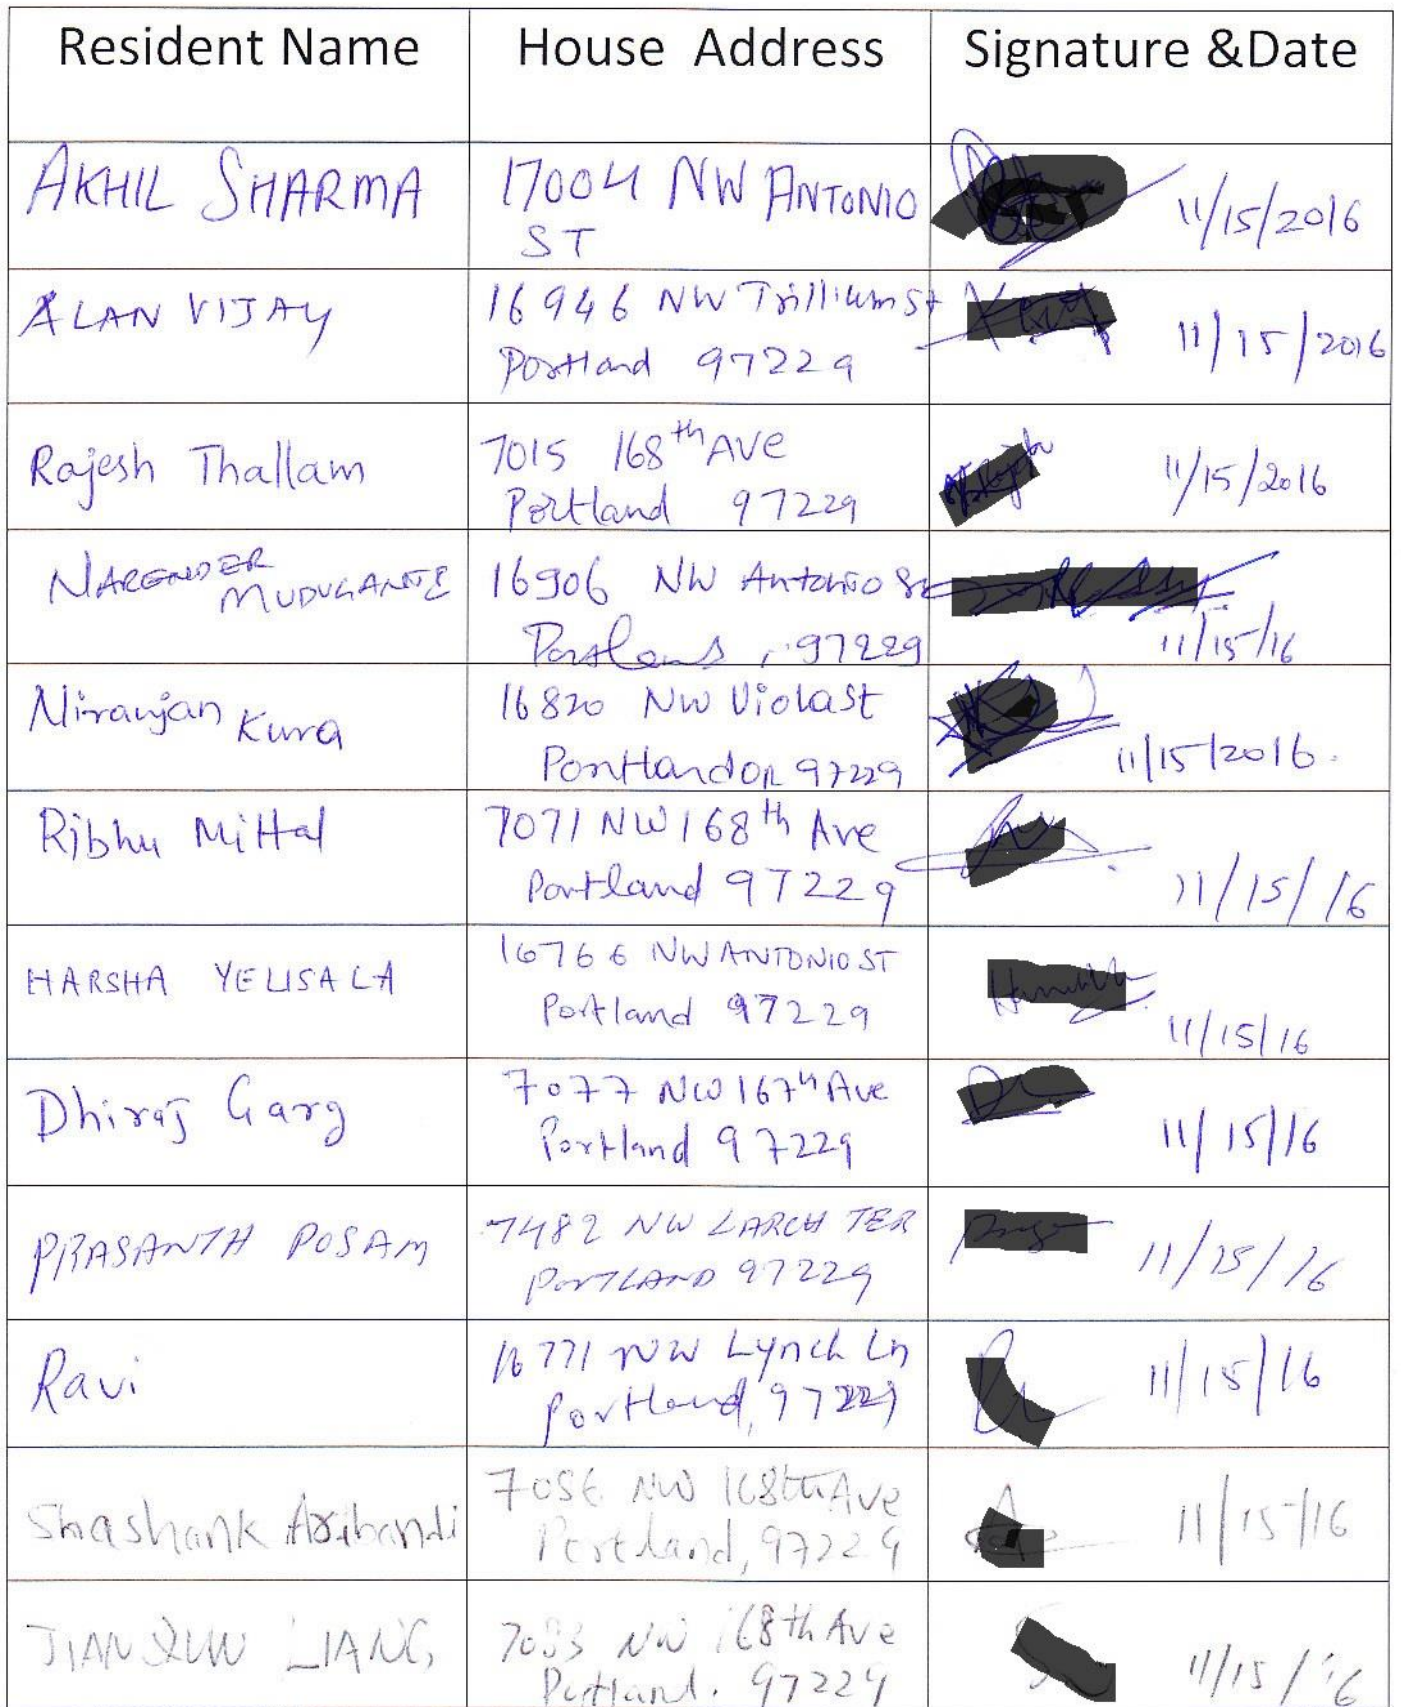 Resident Name House Address Signature &Date
AKHIL SHARMA 17004 NW ANTONIO
ST 11/15/2016
ALAN VIJAY 16946 NW Trillium St
Portland 97229 11/15/2016
Rajesh Thallam 7015 168th AVe
Portland 97229 11/15/2016
NARENDER
MUDUGANTI 16906 NW Antonio St
97229 11/15/16
Niranjan Kura 16820 NW Viola st
Portland OR 97229 11/15/2016.
Ribhu Mittal 7071 NW 168th Ave
Portland 97229 11/15/16
HARSHA YELISALA 16766 NW ANTONIO ST
Portland 97229 11/15/16
Dhiraj Garg 7077 NW 167th Ave
Portland 97229 11/15/16
PRASANTH POSAM 7482 NW LARCH TER
PORTLAND 97229 11/15/16
Ravi 16771 NW Lynch Ln
portland, 97229 11/15/16
Shashank Aribandi NW 168th Ave
Portland, 97229 11/15/16
LIANG NW 168th Ave
Portland. 97229 11/15/16